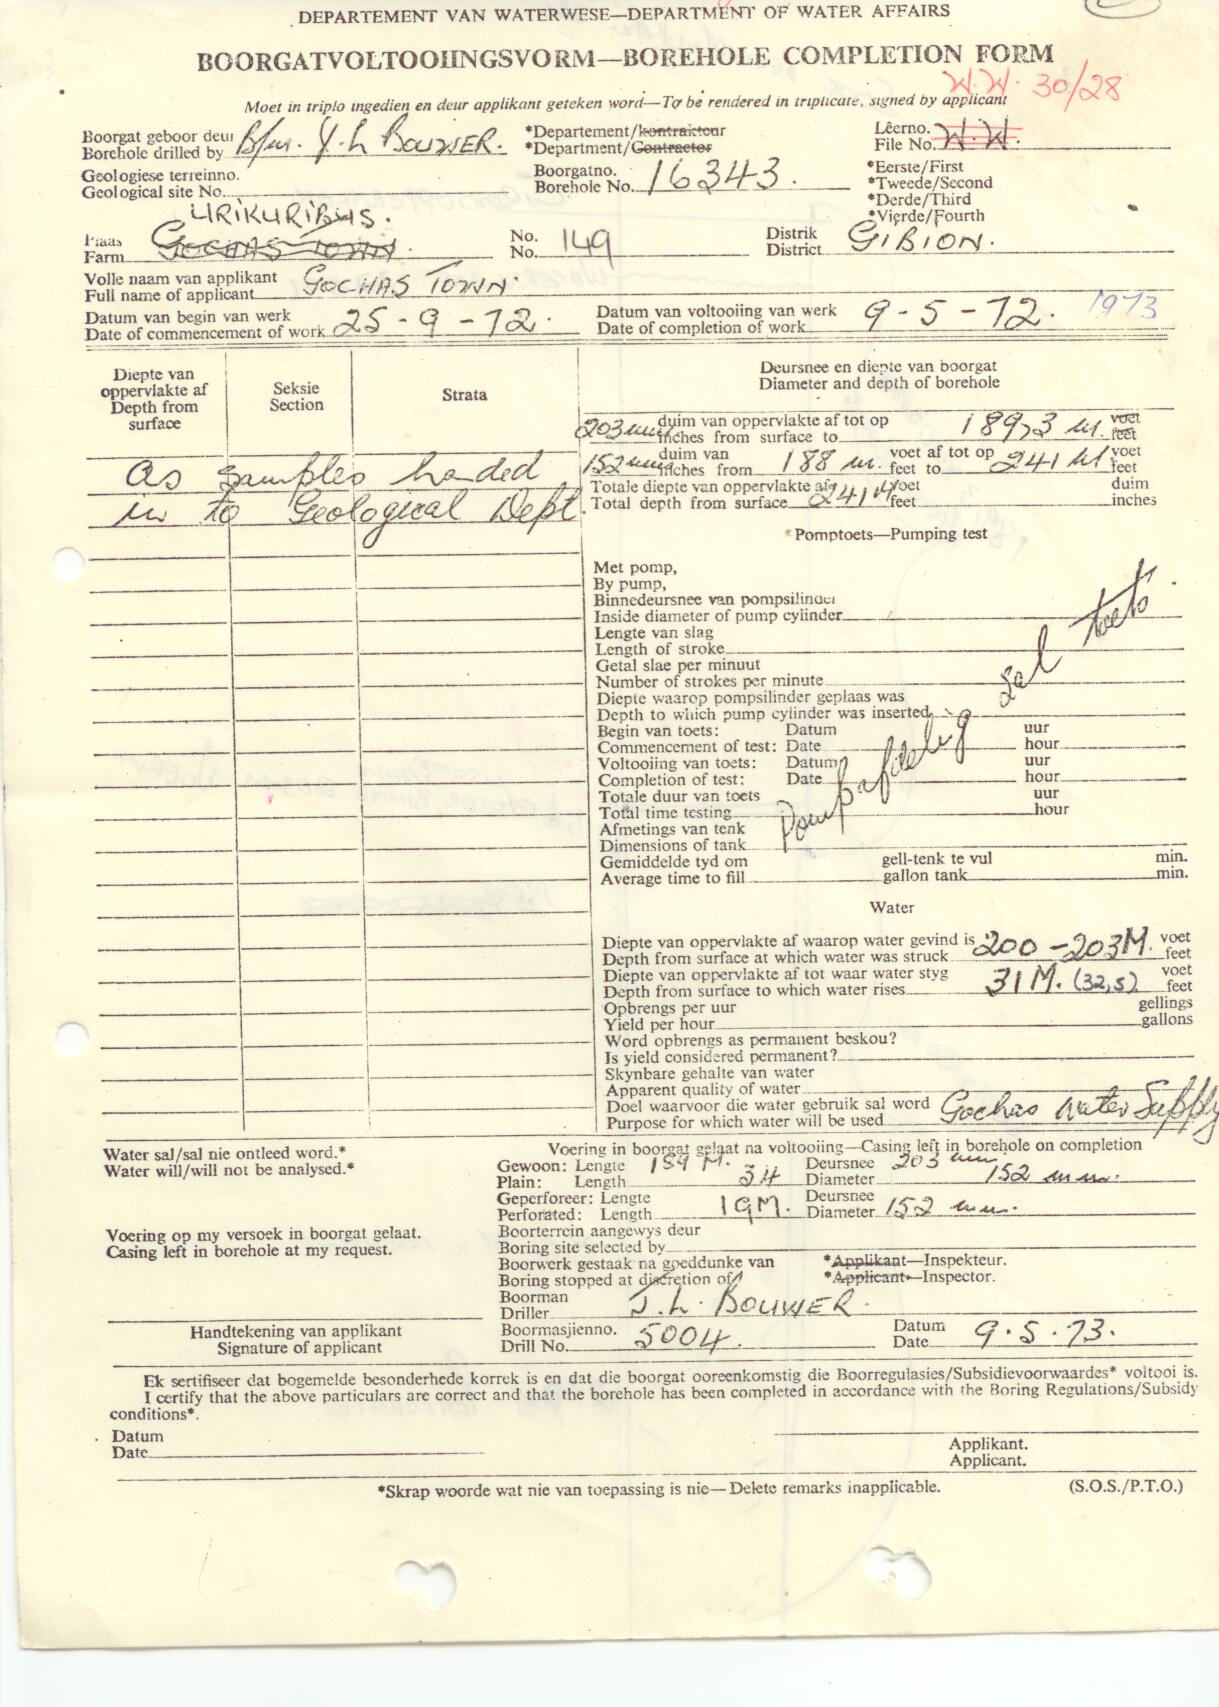 DEPARTEMENT VAN WATERWESE—DEPARTMENT OF WATER AFFAIRS
BOORGATVOLTOOIINGSVORM—BOREHOLE COMPLETION FORM
W.W. 30/28
Moet in triplo ingedien en deur applikant geteken word—To be rendered in triplicate, signed by applicant
Boorgat geboor deur
Borehole drilled by B/m. J. L BOUWER.
*Departement/kontrakteur
*Department/Contractor
Lêerno.
File No. W.W.
Geologiese terreinno.
Geological site No.
Boorgatno.
Borehole No. 16343.
*Eerste/First
*Tweede/Second
*Derde/Third
*Vierde/Fourth
URIKURIBUS.
Plaas
Farm GOCHAS TOWN
No.
No. 149
Distrik
District GIBION.
Volle naam van applikant
Full name of applicant GOCHAS TOWN.
Datum van begin van werk
Date of commencement of work 25-9-72.
Datum van voltooiing van werk
Date of completion of work 9-5-72. 1973
Diepte van
oppervlakte af
Depth from
surface
Seksie
Section
Strata
as samples handed
in to Geological Dept.
Deursnee en diepte van boorgat
Diameter and depth of borehole
203mm duim van oppervlakte af tot op voet
inches from surface to 189,3 m. feet
152mm duim van voet af tot op voet
inches from 188 m. feet to 241 M feet
Totale diepte van oppervlakte af voet duim
Total depth from surface 241 M feet inches
*Pomptoets—Pumping test
Met pomp,
By pump,
Binnedeursnee van pompsilinder
Inside diameter of pump cylinder
Lengte van slag
Length of stroke
Getal slae per minuut
Number of strokes per minute
Diepte waarop pompsilinder geplaas was
Depth to which pump cylinder was inserted
Begin van toets: Datum uur
Commencement of test: Date hour
Voltooiing van toets: Datum uur
Completion of test: Date hour
Totale duur van toets uur
Total time testing hour
Afmetings van tenk
Dimensions of tank
Gemiddelde tyd om gell-tenk te vul min.
Average time to fill gallon tank min.
Pompafdeling sal toets
Water
Diepte van oppervlakte af waarop water gevind is voet
Depth from surface at which water was struck 200-203M. feet
Diepte van oppervlakte af tot waar water styg voet
Depth from surface to which water rises 31M. (32,5) feet
Opbrengs per uur gellings
Yield per hour gallons
Word opbrengs as permanent beskou?
Is yield considered permanent?
Skynbare gehalte van water
Apparent quality of water
Doel waarvoor die water gebruik sal word
Purpose for which water will be used Gochas Water Supply
Water sal/sal nie ontleed word.*
Water will/will not be analysed.*
Voering op my versoek in boorgat gelaat.
Casing left in borehole at my request.
Handtekening van applikant
Signature of applicant
Voering in boorgat gelaat na voltooiing—Casing left in borehole on completion
Gewoon: Lengte 189 M. Deursnee 203 mm
Plain: Length 34 Diameter 152 mm.
Geperforeer: Lengte Deursnee
Perforated: Length 19M. Diameter 152 mm.
Boorterrein aangewys deur
Boring site selected by
Boorwerk gestaak na goeddunke van *Applikant—Inspekteur.
Boring stopped at discretion of *Applicant—Inspector.
Boorman
Driller J. L. BOUWER.
Boormasjienno.
Drill No. 5004.
Datum
Date 9.5.73.
Ek sertifiseer dat bogemelde besonderhede korrek is en dat die boorgat ooreenkomstig die Boorregulasies/Subsidievoorwaardes* voltooi is.
I certify that the above particulars are correct and that the borehole has been completed in accordance with the Boring Regulations/Subsidy
conditions*.
Datum
Date
Applikant.
Applicant.
*Skrap woorde wat nie van toepassing is nie—Delete remarks inapplicable.
(S.O.S./P.T.O.)